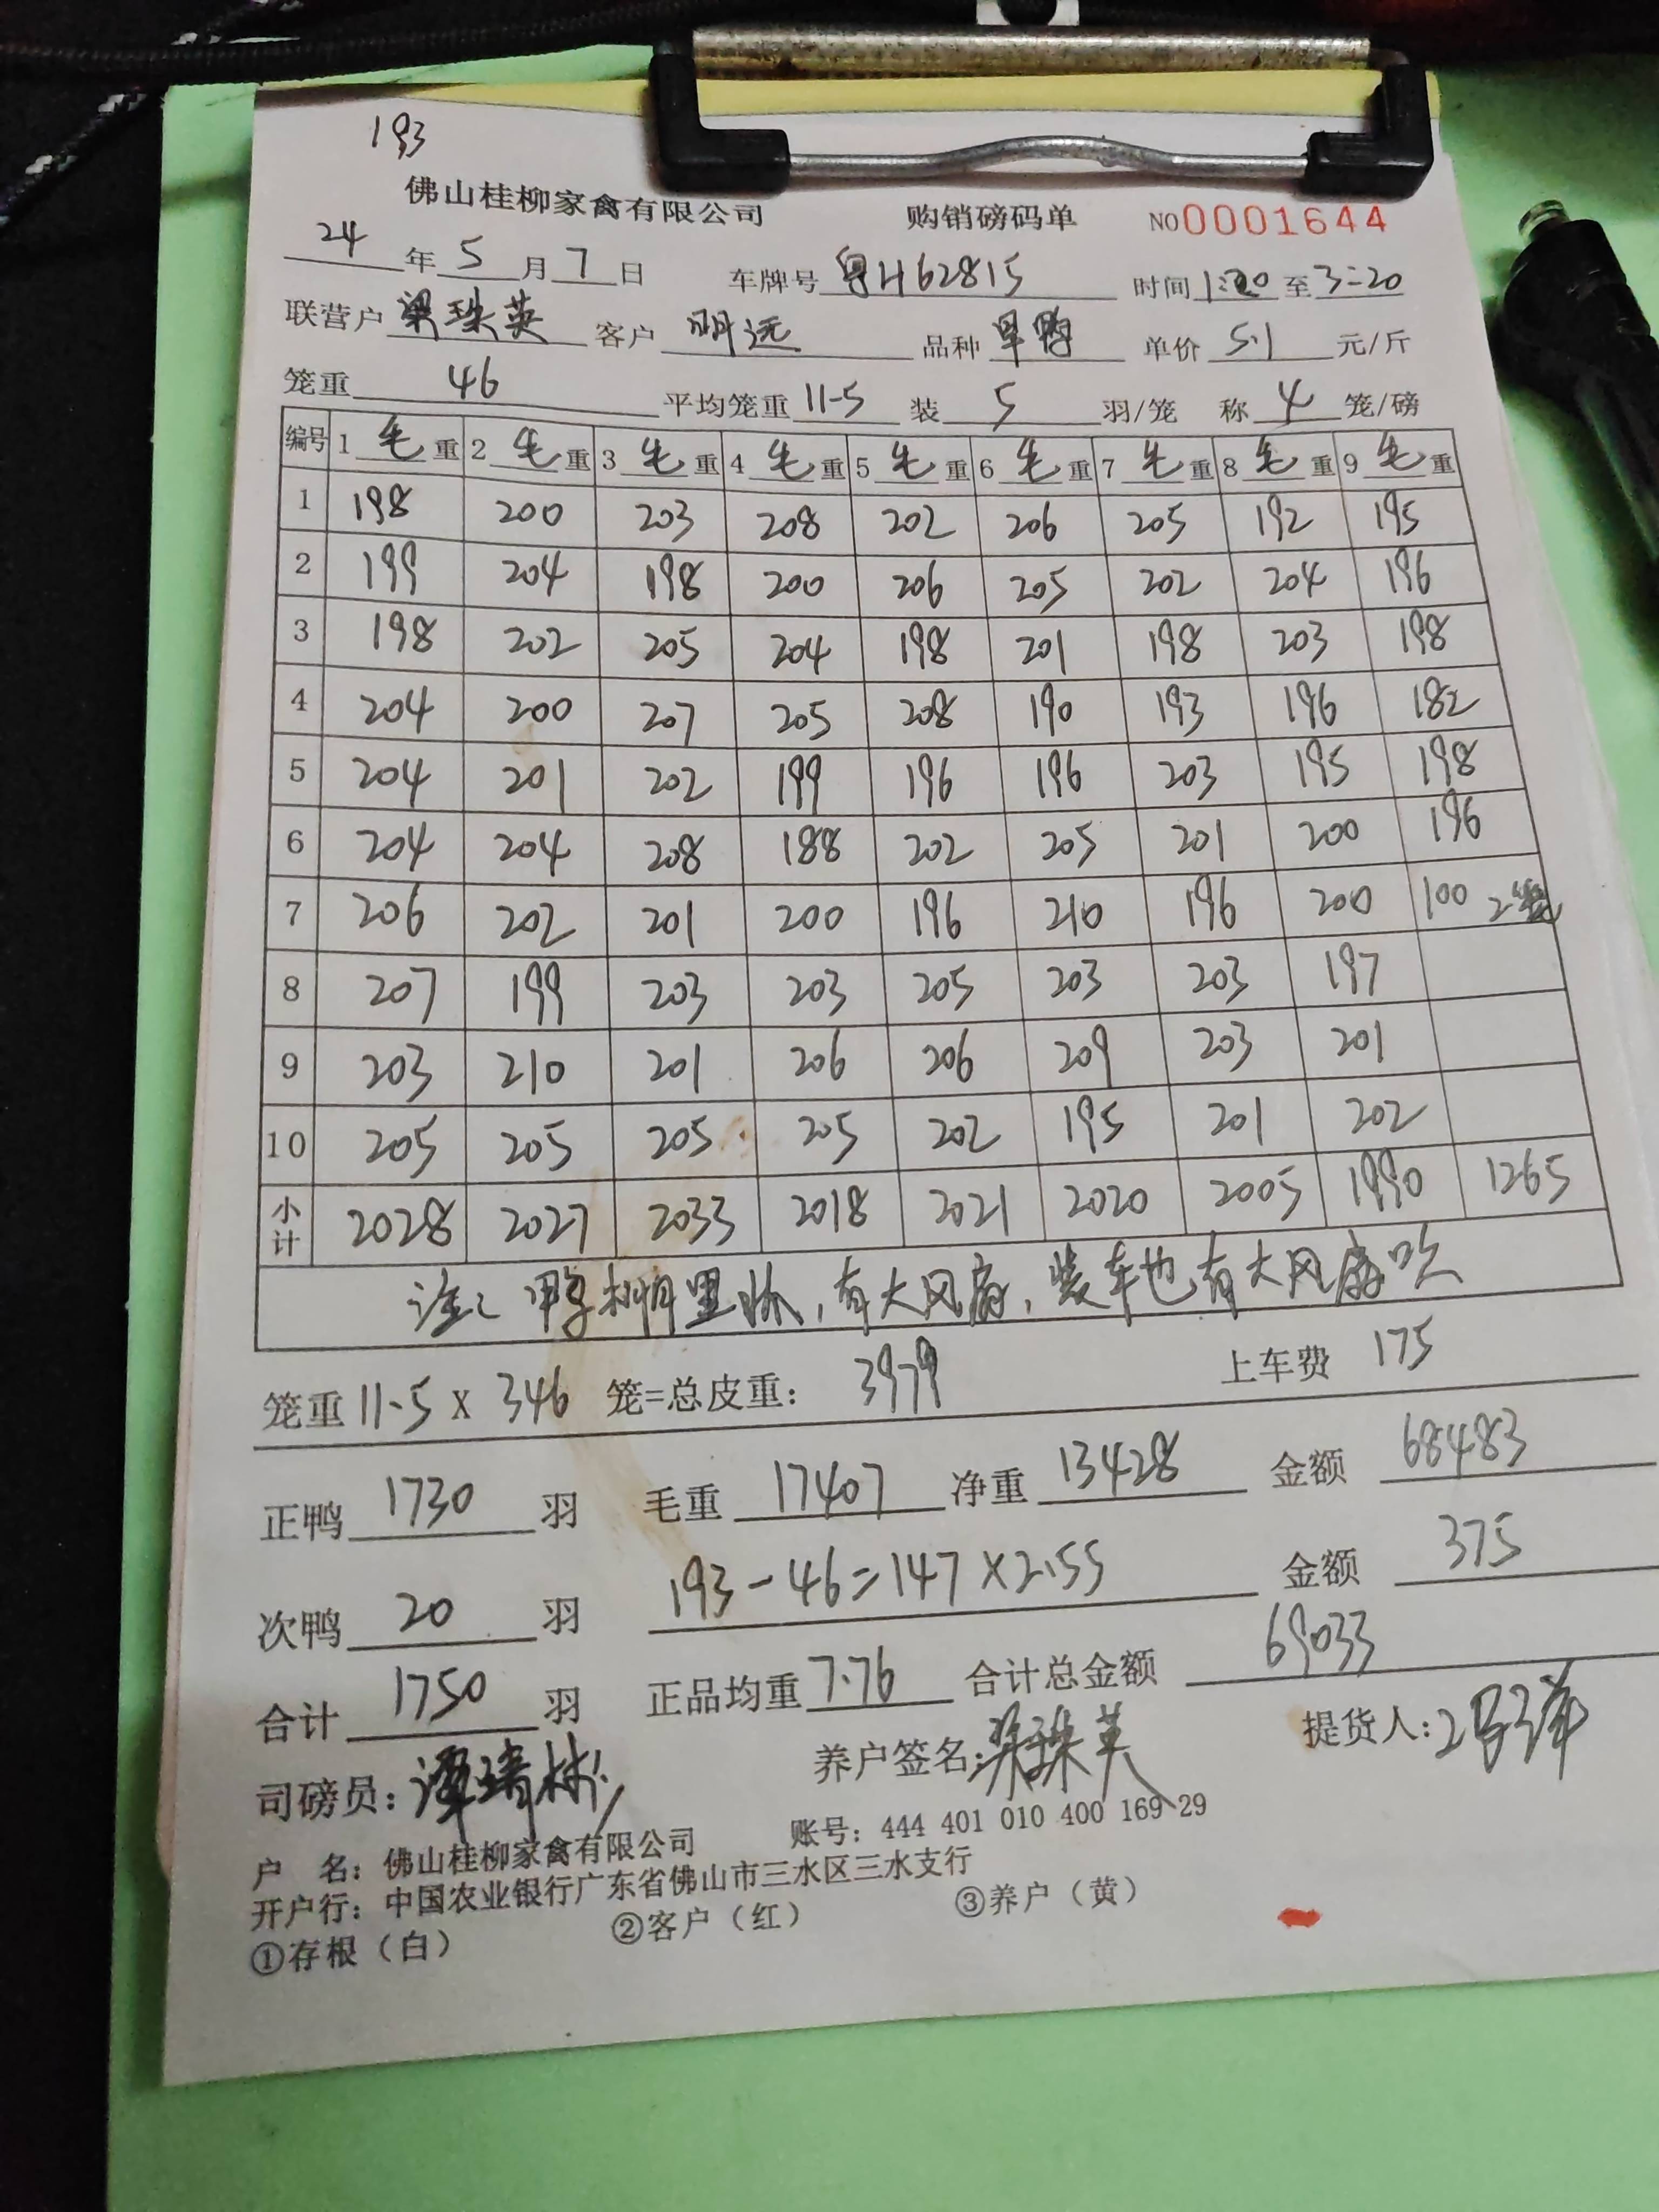 193
佛山桂柳家禽有限公司 购销磅码单 NO 0001644
24 年 5 月 7 日 车牌号 粤H62815 时间 1:20 至 3:20
联营户 梁珠英 客户 明远 品种 旱鸭 单价 5.1 元/斤
笼重 46 平均笼重 11.5 装 5 羽/笼 称 4 笼/磅
编号 1 毛 重 2 毛 重 3 毛 重 4 毛 重 5 毛 重 6 毛 重 7 毛 重 8 毛 重 9 毛 重
1 198 200 203 208 202 206 205 192 195
2 199 204 198 200 206 205 202 204 196
3 198 202 205 204 198 201 198 203 198
4 204 200 207 205 208 190 193 196 182
5 204 201 202 199 196 196 203 195 198
6 204 204 208 188 202 205 201 200 196
7 206 202 201 200 196 210 196 200 100 2笼
8 207 199 203 203 205 203 203 197
9 203 210 201 206 206 209 203 201
10 205 205 205 205 202 195 201 202
小计 2028 2027 2033 2018 2021 2020 2005 1990 1265
注: 鸭棚里 ,有大风扇,装车也有大风扇吹
笼重 11.5 x 346 笼=总皮重: 3979 上车费 175
正鸭 1730 羽 毛重 17407 净重 13428 金额 68483
次鸭 20 羽 193-46=147×2.55 金额 375
合计 1750 羽 正品均重 7.76 合计总金额 69033
司磅员: 谭 养户签名: 梁珠英 提货人:
户 名: 佛山桂柳家禽有限公司 账号: 444 401 010 400 169 29
开户行: 中国农业银行广东省佛山市三水区三水支行
①存根(白) ②客户(红) ③养户(黄)